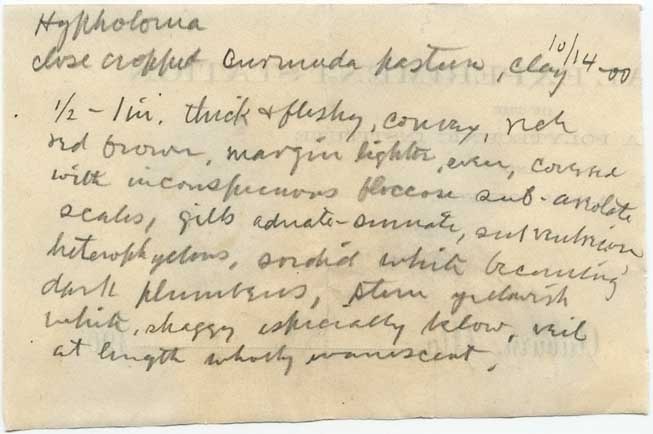 Hypholoma
10/14-00
close cropped Burmuda pasture, clay
1/2 - 1 in. thick & fleshy, convex, rich
red brown, margin lighter, even, covered
with inconspicuous floccose sub-areolate
scales, gills adnate-sinuate, subventricose
heterophyllous, sordid white becoming
dark plumbeus, stem yellowish
white, shaggy especially below, veil
at length wholly evanescent.